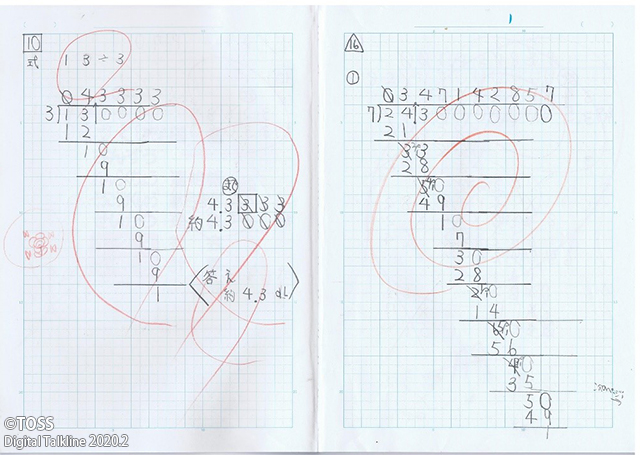 10
式 13÷3
04.3333
3)13.0000
12
10
9
10
9
10
9
10
9
1
4.3333
約4.3000
答え
約4.3dL
16
①
03.47142857
7)24.30000000
21
33
28
50
49
10
7
30
28
20
14
60
56
40
35
50
49
1
©TOSS
Digital Talkline 2020.2